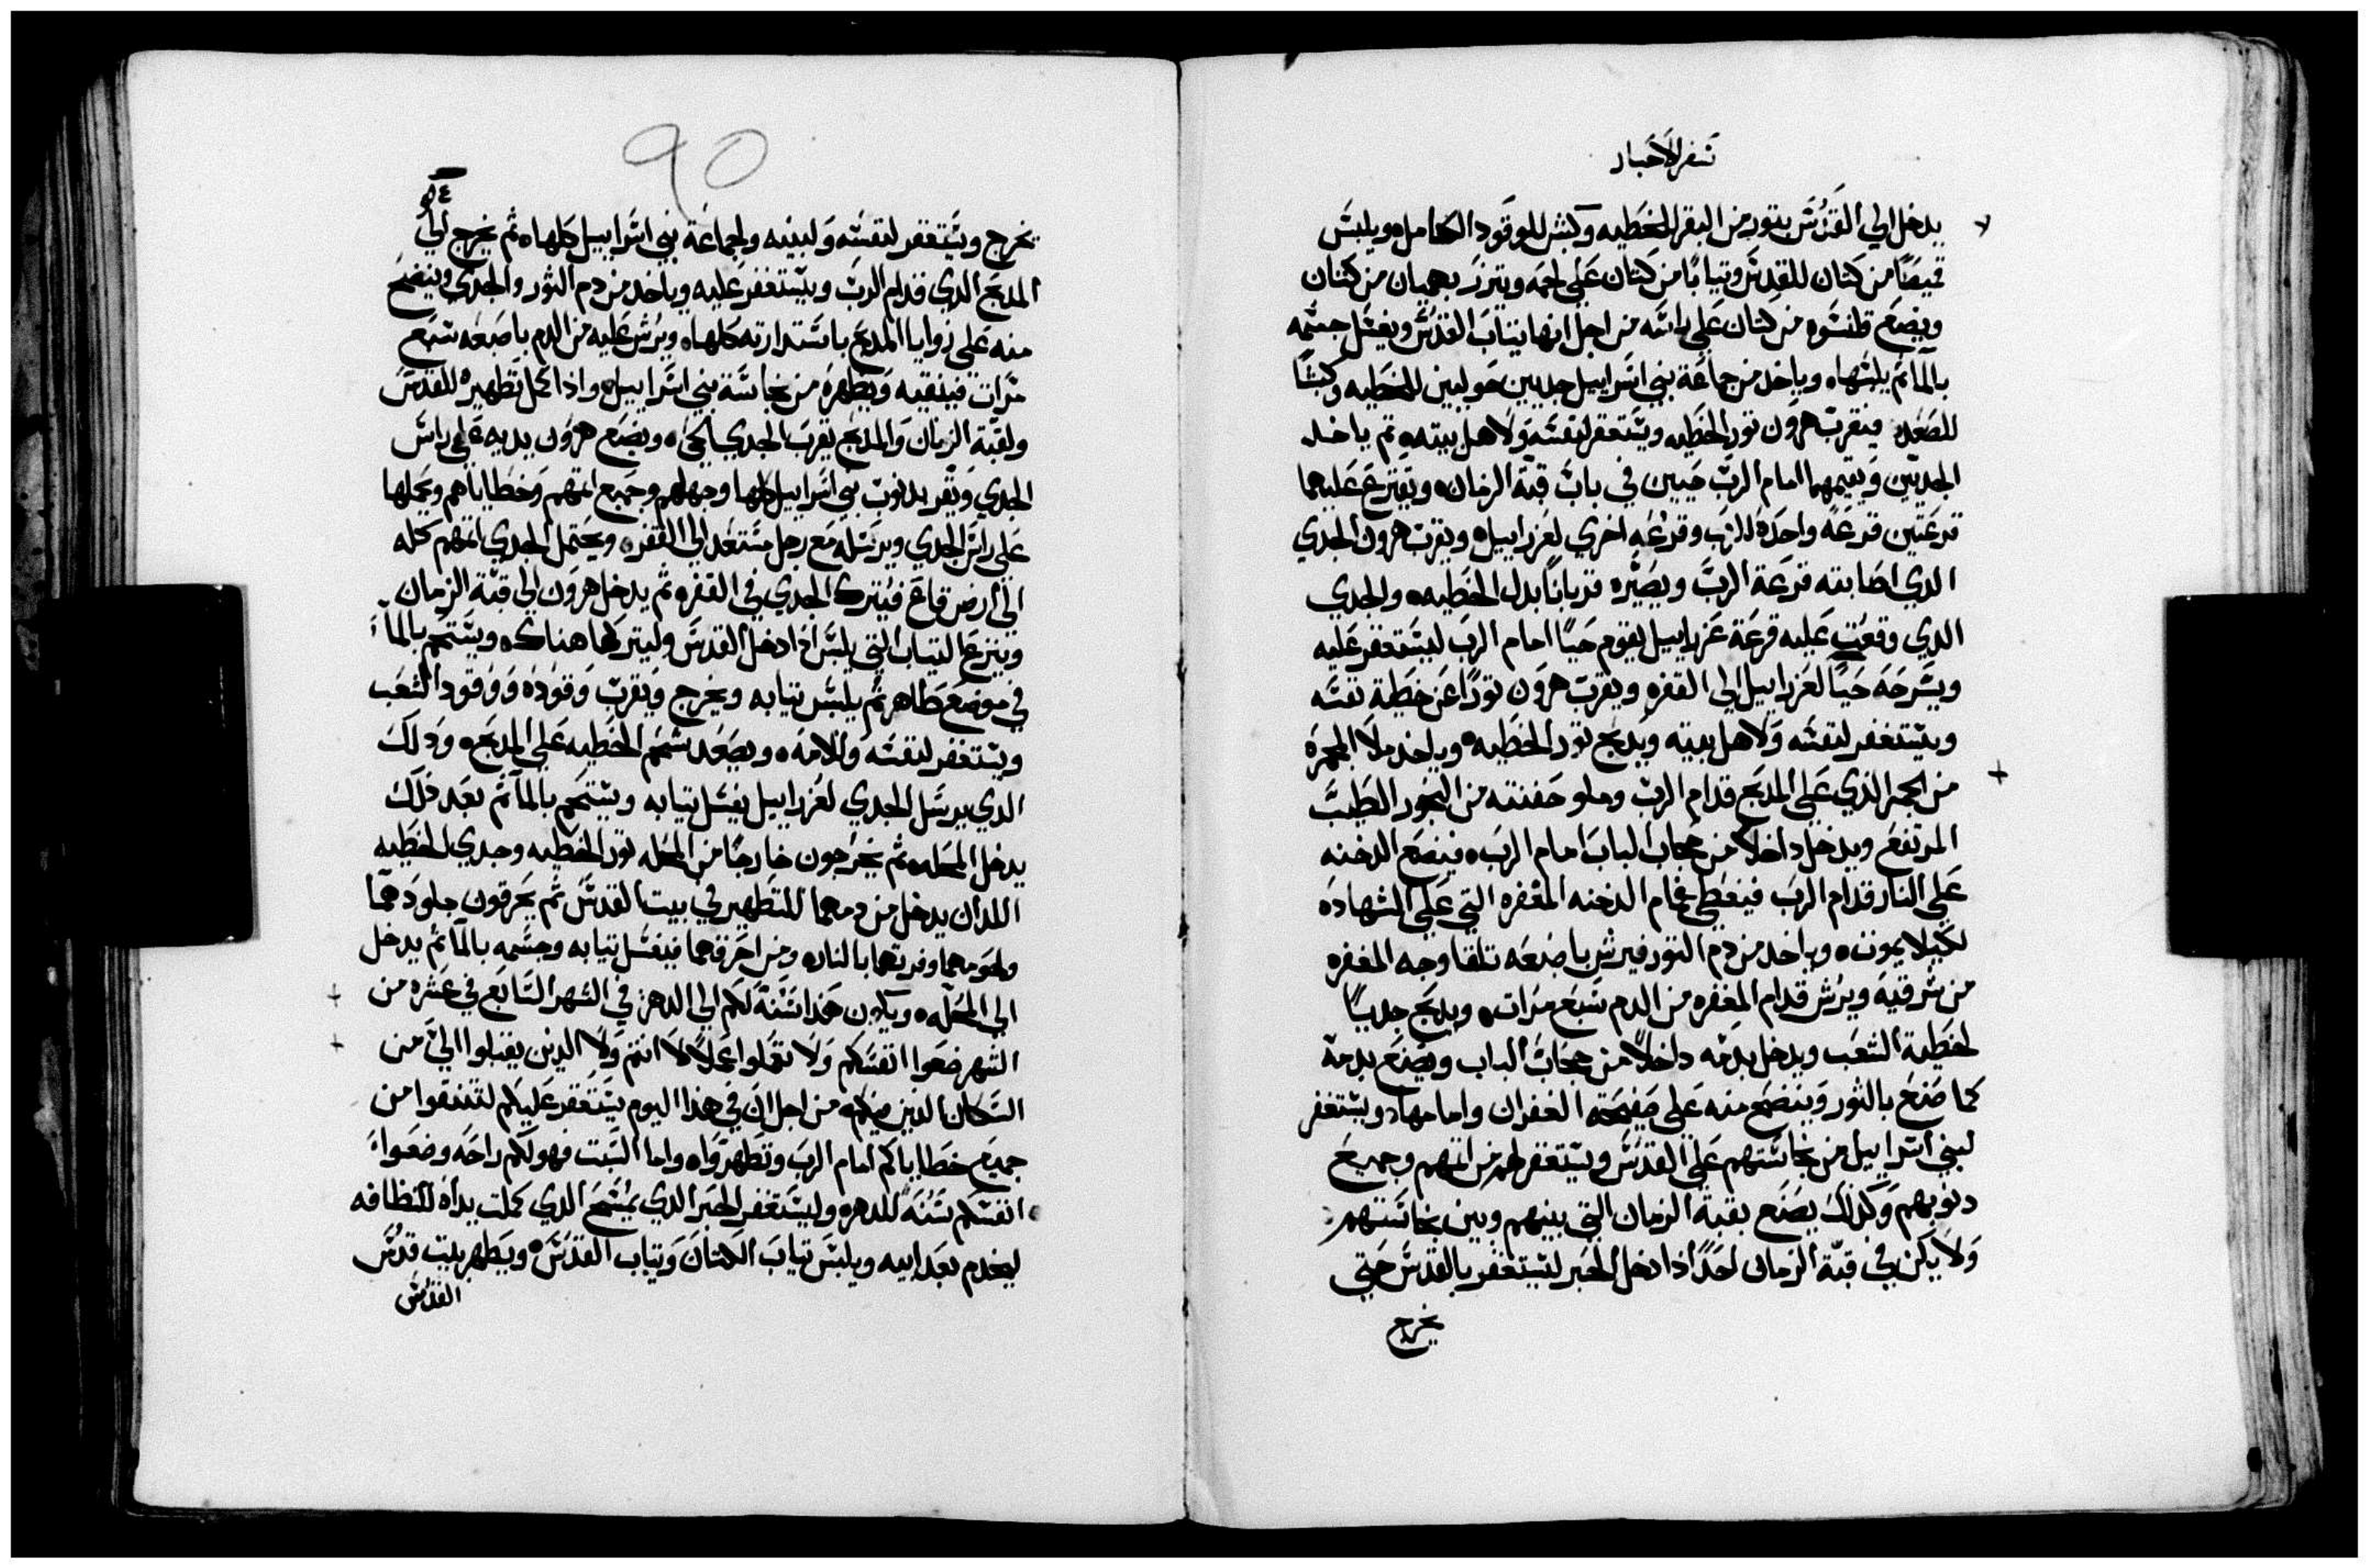 سفر الاحبار
يدخل الي القدس بتور من البقر للخطيه وكبش للوقود الكامل ويلبس
قميصًا من كتان للقدس وتيابًا من كتان علي لحمه ويتزر بهميان من كتان
ويضع قلنسوه من كتان علي راسه من اجل انها تياب القدس ويغسل جسمه
بالمآ تم يلبسها ه وياخد من جماعة بني اسراييل جديين حوليين للخطيه وكبشًا
للصعد فيقرب هرون تور الخطيه ويستغفر لنفسه ولاهل بيته ه تم ياخد
الجديين ويقيمهما امام الرب حيين في باب قبة الزمان ه ويقترع عليهما
قرعتين قرعة واحده للرب وقرعه اخري لعزراييل ه ويقرب هرون الجدي
الدي اصابته قرعة الرب ويصيره قربانًا بدل الخطيه ه والجدي
الدي وقعت عليه قرعة عزراييل يقوم حيًا امام الرب ليستغفر عليه
ويسرحه حيًا لعزراييل الي القفره ويقرب هرون تورًا عن خطية نفسه
ويستغفر لنفسه ولاهل بيته ويدبح تور الخطيه ه وياخد ملا المجمره
من الجمر الذي علي المدبح قدام الرب وملو حفنته من البخور الطيب
المرتفع ويدخل داخلًا من حجاب الباب امام الرب ه فيضع الدخنه
علي النار قدام الرب فيغطي غمام الدخنه المغفره التي علي الشهاده
لكيلا يموت ه وياخد من دم التور فيرش باصبعه تلقا وجه المغفره
من شرقيه ويرش قدام المغفره من الدم سبع مرات ه ويدبح جديًا
لخطية الشعب ويدخل بدمه داخلًا من حجاب الباب ويصنع بدمه
كما صنع بالثور وينضح منه علي صفيحة الغفران وامامها ه ويستغفر
لبني اسراييل من نجاستهم علي القدس ويستغفر لهم من اثمهم وجميع
دنوبهم وكذلك يصنع بقبة الزمان التي بينهم وبين نجاستهم
ولا يكن في قبة الزمان احدًا اذا دخل الحبر ليستغفر بالقدس حتي
يخرج
90
يخرج ويستغفر لنفسه ولبنيه ولجماعة بني اسراييل كلها ه ثم يخرج الي
المدبح الدي قدام الرب ويستغفر عليه وياخد من دم الثور والجدي وينضح
منه علي زوايا المدبح باستدارته كلها ه ويرش عليه من الدم باصبعه سبع
مرات فينقيه ويطهره من نجاسة بني اسراييل ه واذا كمل تطهيره للقدس
ولقبة الزمان والمدبح يقرب الجدي الحي ه ويضع هرون يديه علي راس
الجدي ويقر بدنوب بني اسراييل كلها وجهلهم وجميع اتمهم وخطاياهم ويجعلها
علي راس الجدي ويرسله مع رجل مستعد الي القفره ويحتمل الجدي اتمهم كله
الي ارض قاع فيترك الجدي في القفره ثم يدخل هرون الي قبة الزمان
وينزع التياب التي يلبس اذا دخل القدس وليتركها هناك ه ويستحم بالمآ
في موضع طاهر ثم يلبس تيابه ويخرج ويقرب وقوده ووقود الشعب
ويستغفر لنفسه وللامه ه ويصعد شحم الخطيه علي المدبح ه ودلك
الدي يرسل الجدي لعزراييل يغسل تيابه ويستحم بالمآ ثم بعد ذلك
يدخل المحله ه ثم يخرجون خارجًا من المحله تور الخطيه وجدي الخطيه
اللدان يدخل من دمهما للتطهير في بيت القدس ثم يحرقون جلودهما
ولحومهما وفرتهما بالنار ه ومن احرقهما فيغسل تيابه وجسمه بالمآ ثم يدخل
الي المحله ه ويكون هذا سنة لكم الي الدهر في الشهر السابع في عشره من
الشهر ضعوا انفسكم ولا تعملوا عملًا لا انتم ولا الدين يقبلوا الي من
السكان الدين فيكم ه من اجل ان في هذا اليوم يستغفر عليكم لتنقوا من
جميع خطاياكم امام الرب وتطهروا ه واما السبت فهو لكم راحه وضعوا
انفسكم سنة للدهر ه وليستغفر الحبر الدي يمسح الدي كملت يداه للنظافه
ليخدم بعد ابيه ويلبس تياب الكتان وتياب القدس ه ويطهر بيت قدس
القدس